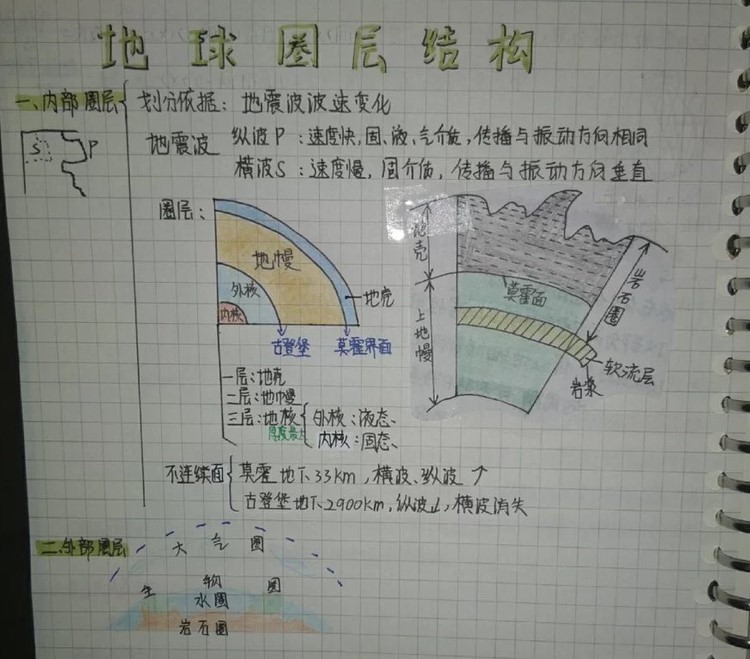 地球圈层结构
一、内部圈层
划分依据：地震波波速变化
地震波
纵波P：速度快，固、液、气介质，传播与振动方向相同
横波S：速度慢，固介质，传播与振动方向垂直
S
P
圈层：
地幔
外核
内核
地壳
古登堡
莫霍界面
地壳
上地幔
莫霍面
岩石圈
软流层
岩浆
一层：地壳
二层：地幔
三层：地核
外核：液态、
内核：固态、
不连续面
莫霍地下33km，横波、纵波↑
古登堡地下2900km，纵波↓，横波消失
二、外部圈层
大气圈
生物圈
水圈
岩石圈